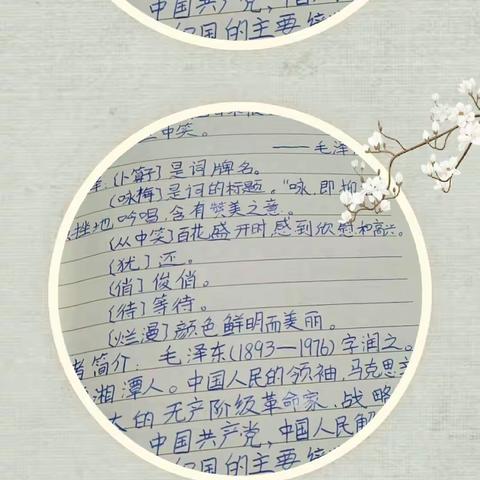 中国共产党,中国人
国的主要
中笑。
——毛泽
〔卜算子〕是词牌名。
〔咏梅〕是词的标题。"咏,即抑
挫地吟唱,含有赞美之意。
〔丛中笑〕百花盛开时感到欣慰和高兴。
〔犹〕还。
〔俏〕俊俏。
〔待〕等待。
〔烂漫〕颜色鲜明而美丽。
者简介:毛泽东(1893—1976)字润之。
湘潭人。中国人民的领袖,马克思主
的无产阶级革命家,战略
中国共产党,中国人民解
国的主要